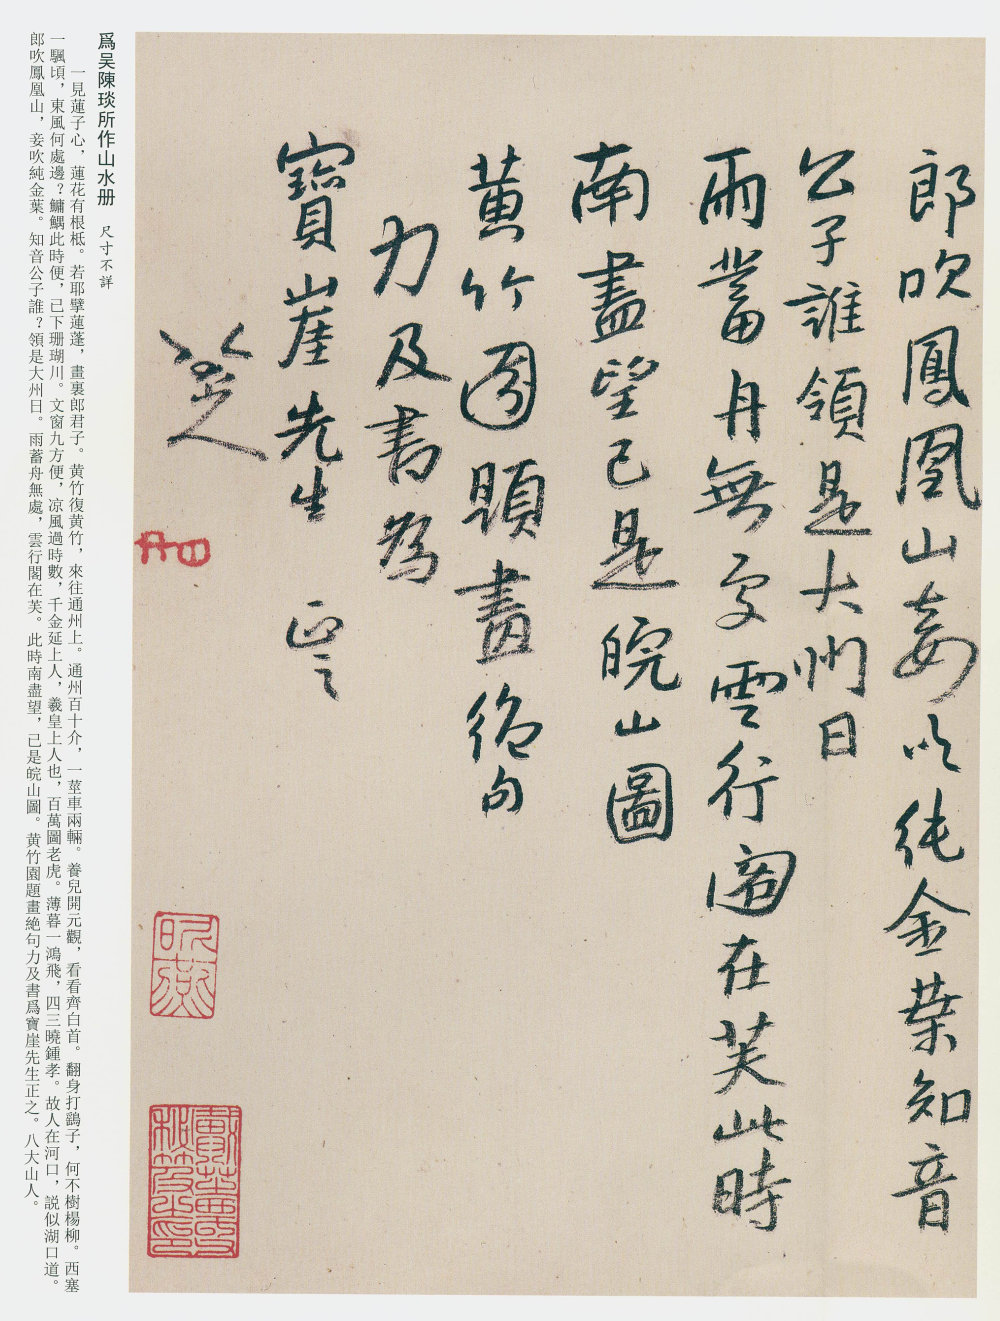 郎吹鳳凰山妾吹純金葉知音
公子誰領是大州日
雨蓄舟無處雲行閣在芙此時
南盡望已是皖山圖
黃竹園題畫絶句
力及書為
寶崖先生正之
八大山人
爲吴陳琰所作山水册 尺寸不詳
一見蓮子心，蓮花有根柢。若耶擘蓮蓬，畫裏郎君子。黄竹復黄竹，來往通州上。通州百十介，一莖車兩輛。養兒開元觀，看看齊白首。翻身打鷂子，何不樹楊柳。西塞
一颿頃，東風何處邊？鱅鰅此時便，已下珊瑚川。文窗九方便，凉風過時數，千金延上人，羲皇上人也，百萬圖老虎。薄暮一鴻飛，四三曉鍾孝。故人在河口，説似湖口道。
郎吹鳳凰山，妾吹純金葉。知音公子誰？領是大州日。雨蓄舟無處，雲行閣在芙。此時南盡望，已是皖山圖。黄竹園題畫絶句力及書爲寶崖先生正之。八大山人。